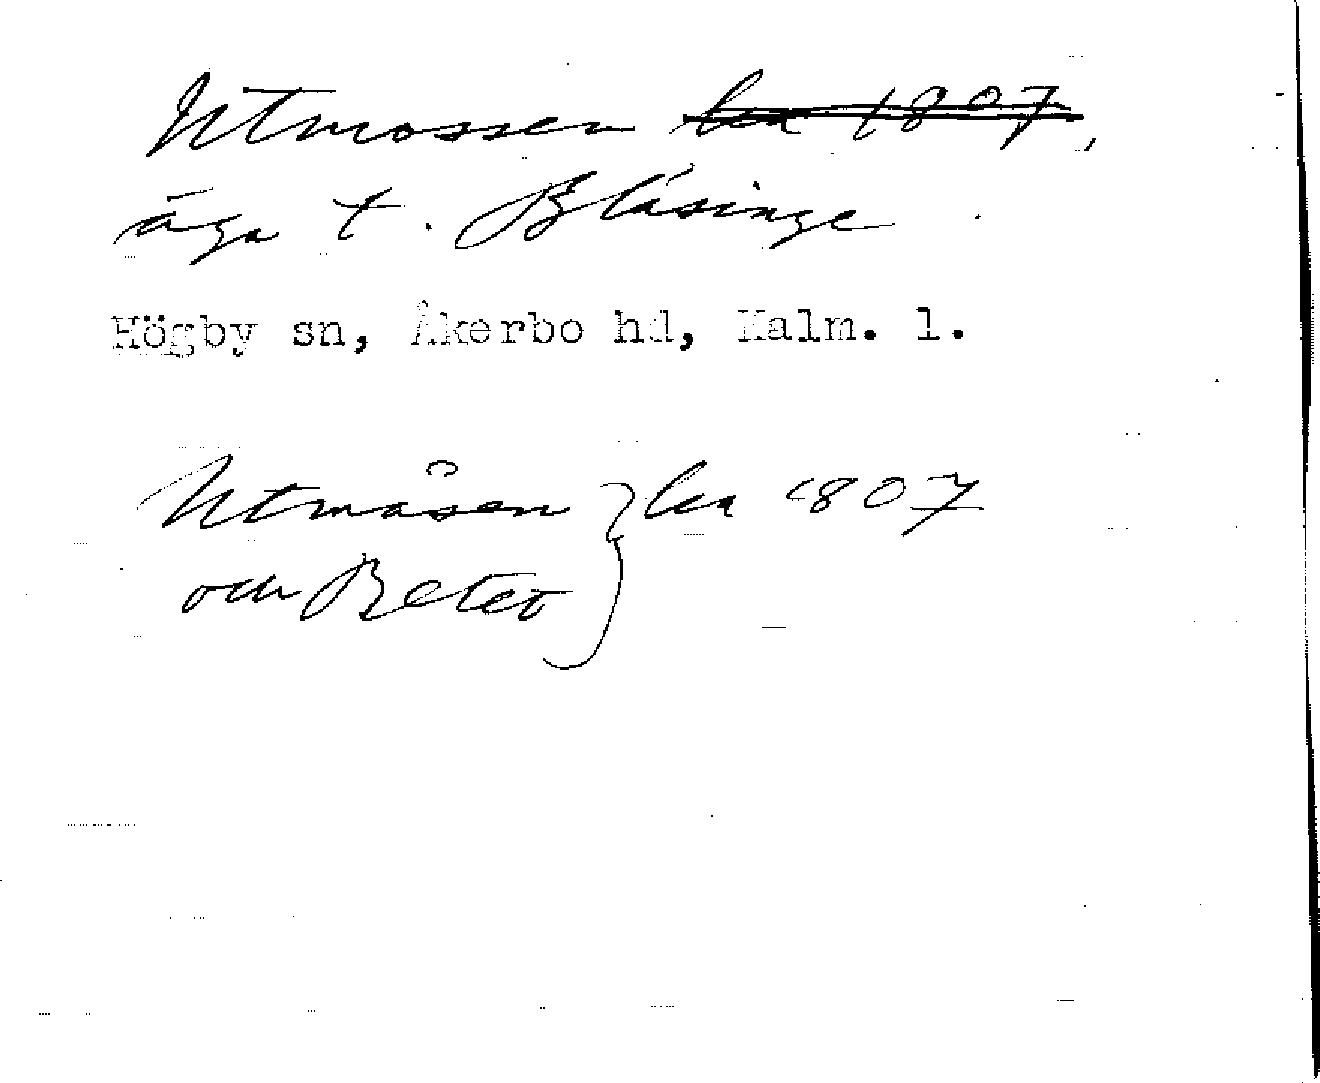 Utmossen lca 1807,
äga t. Bläsinge
Högby sn, Åkerbo hd, Kalm. l.
Utmåsen } lca 1807
och Betet